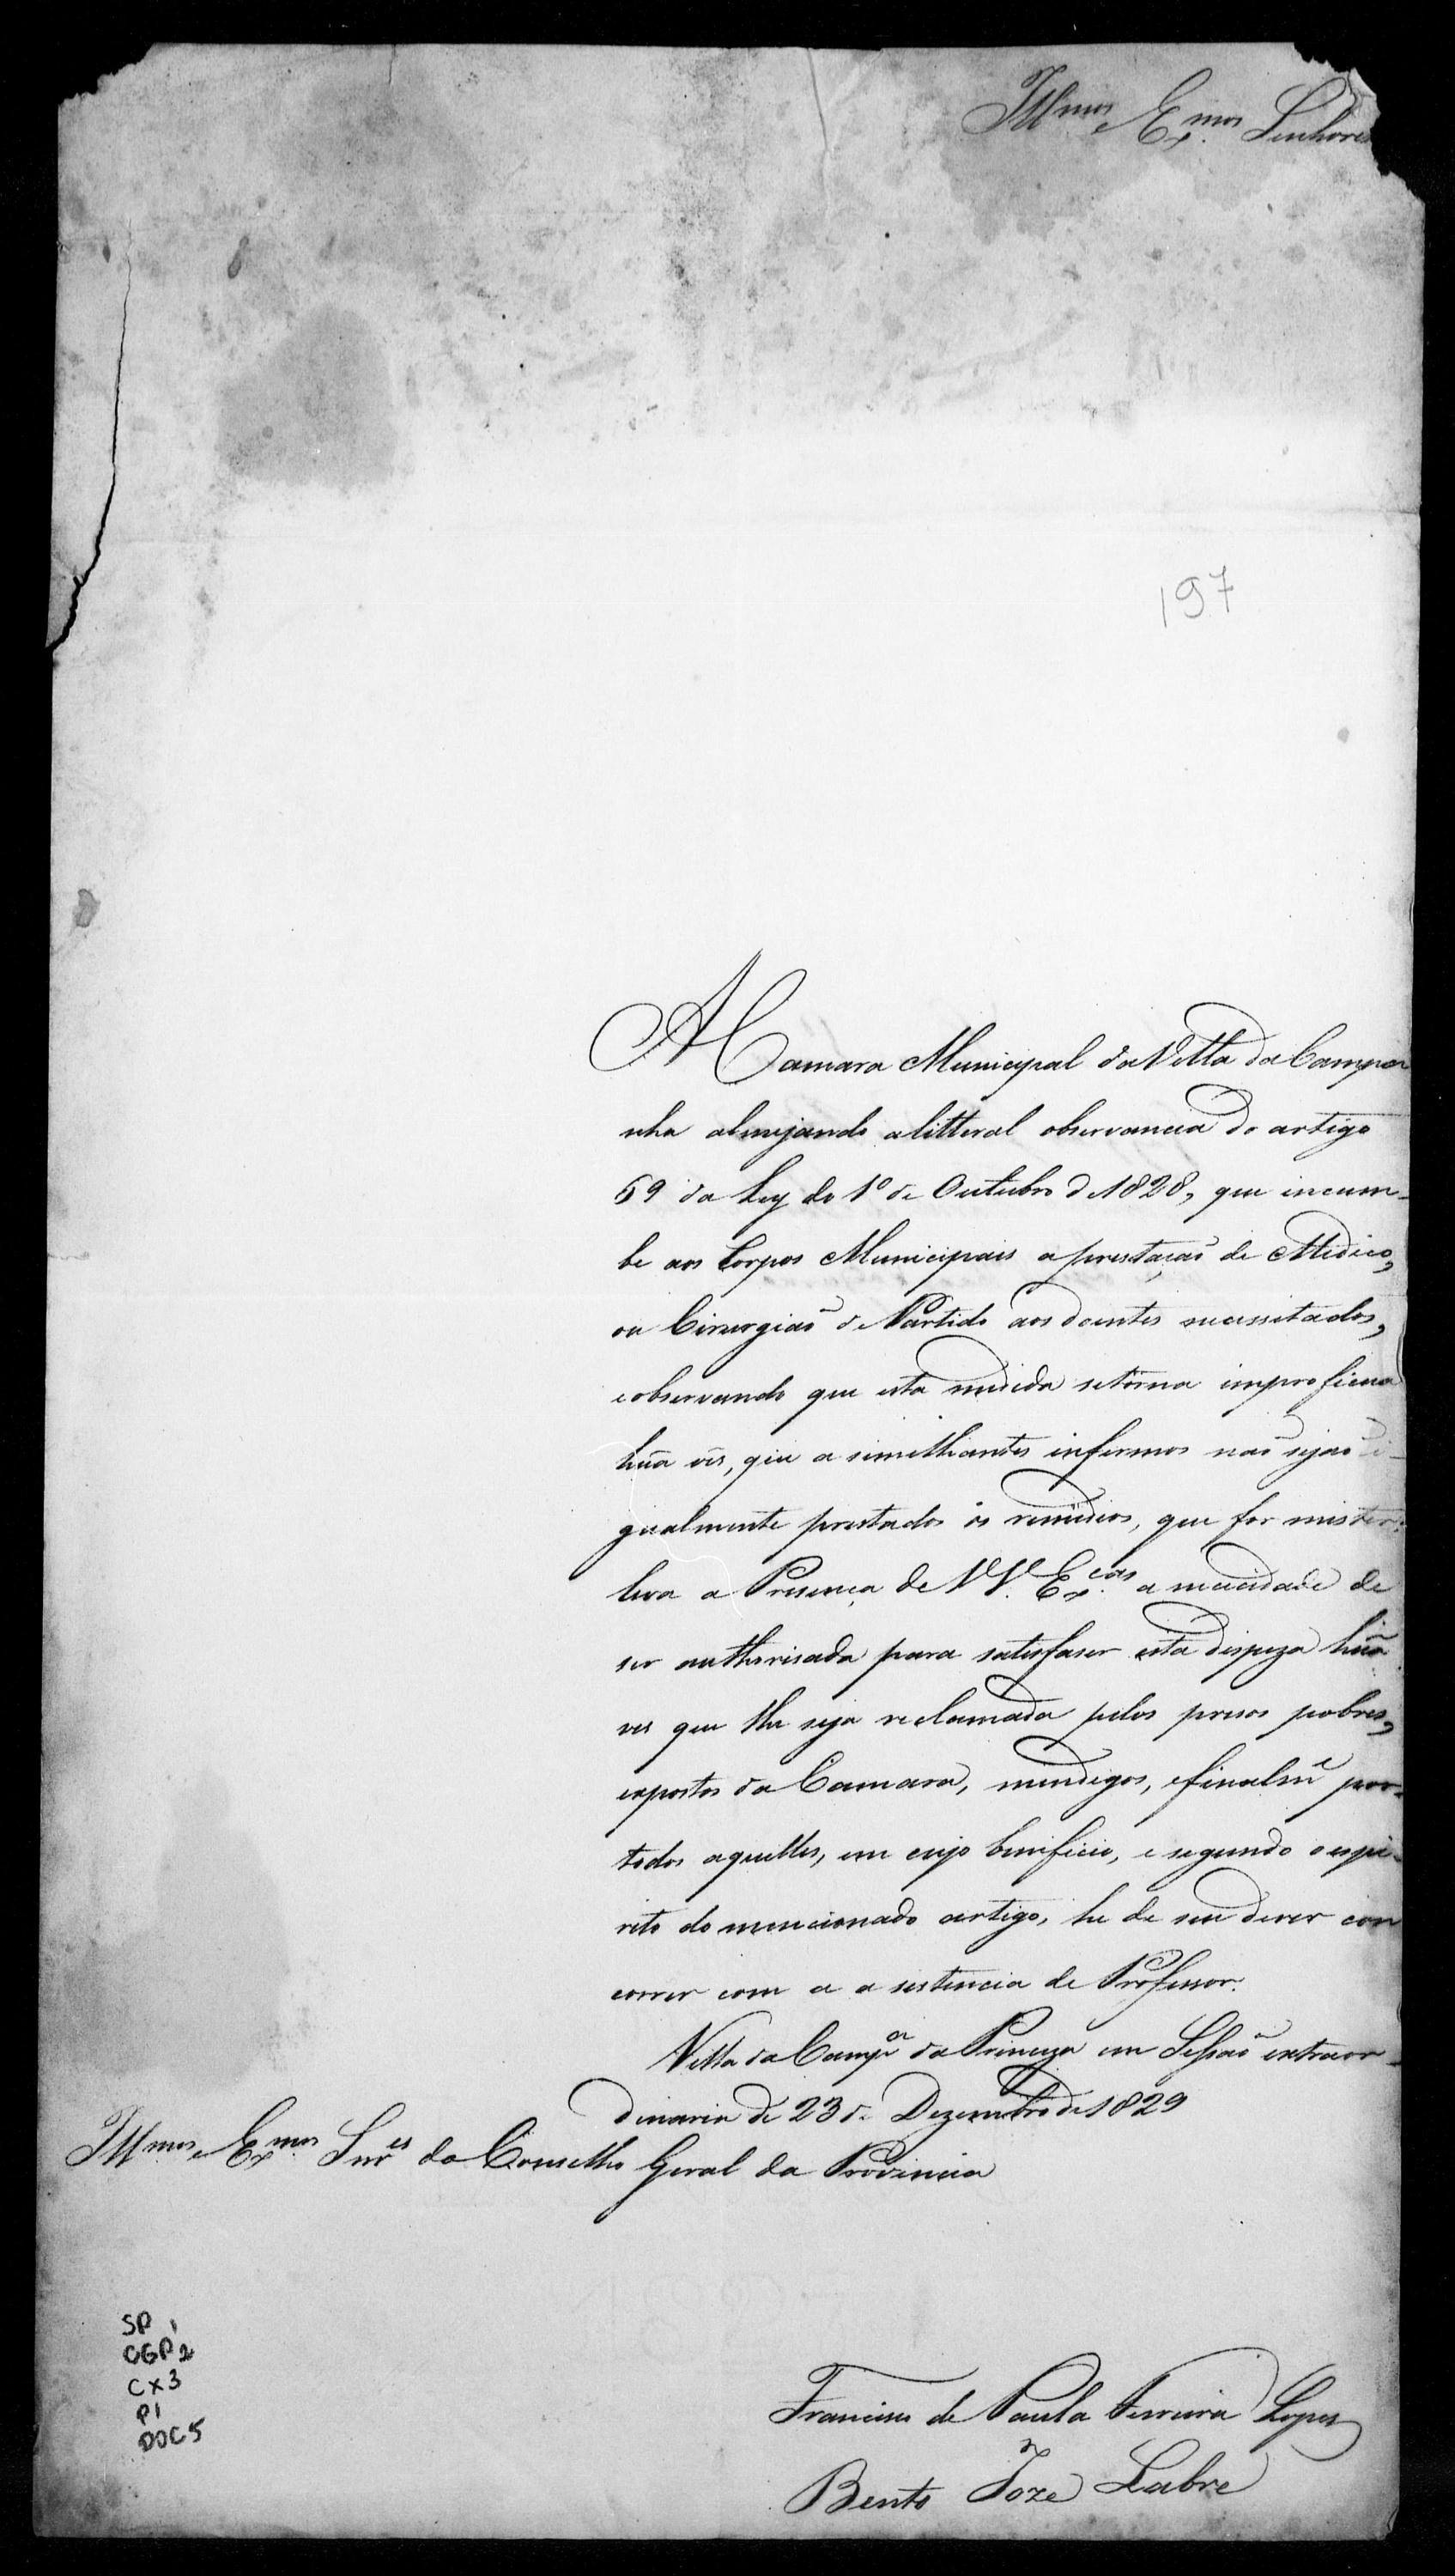 Illmos e Exmos Senhores
197
A Camara Municipal da Villa da Campa
nha almejando a litteral observancia do artigo
69 da Ley do 1º de Outubro de 1828, que incum-
be aos Corpos Municipais a prestaçaõ de Medico,
ou Cirurgiaõ de Partido aos doentes necessitados,
e observando que esta medida se torna improficua
huã ves, que a similhantes infermos naõ sejaõ i-
gualmente prestados os remedios, que for mister:
leva a Presença de VV. Excas a necicidade de
ser authorisada para satisfaser esta dispeza huã
ves que lhe seja reclamada pelos presos pobres,
expostos da Camara, mendigos, e finalmē por
todos aquelles, em cujo beneficio, e segundo o espi-
rito do mencionado artigo, he de seu dever con
correr com a a sistencia de Professor.
Villa da Campª da Princeza em Sessaõ extraor-
dinaria de 23 de Dezembro de 1829
Illmos e Exmos Snres do Conselho Geral da Provincia
SP 1
CGP 2
CX 3
P1
DOC 5
Francisco de Paula Ferreira Lopes
Bento Joze Labre